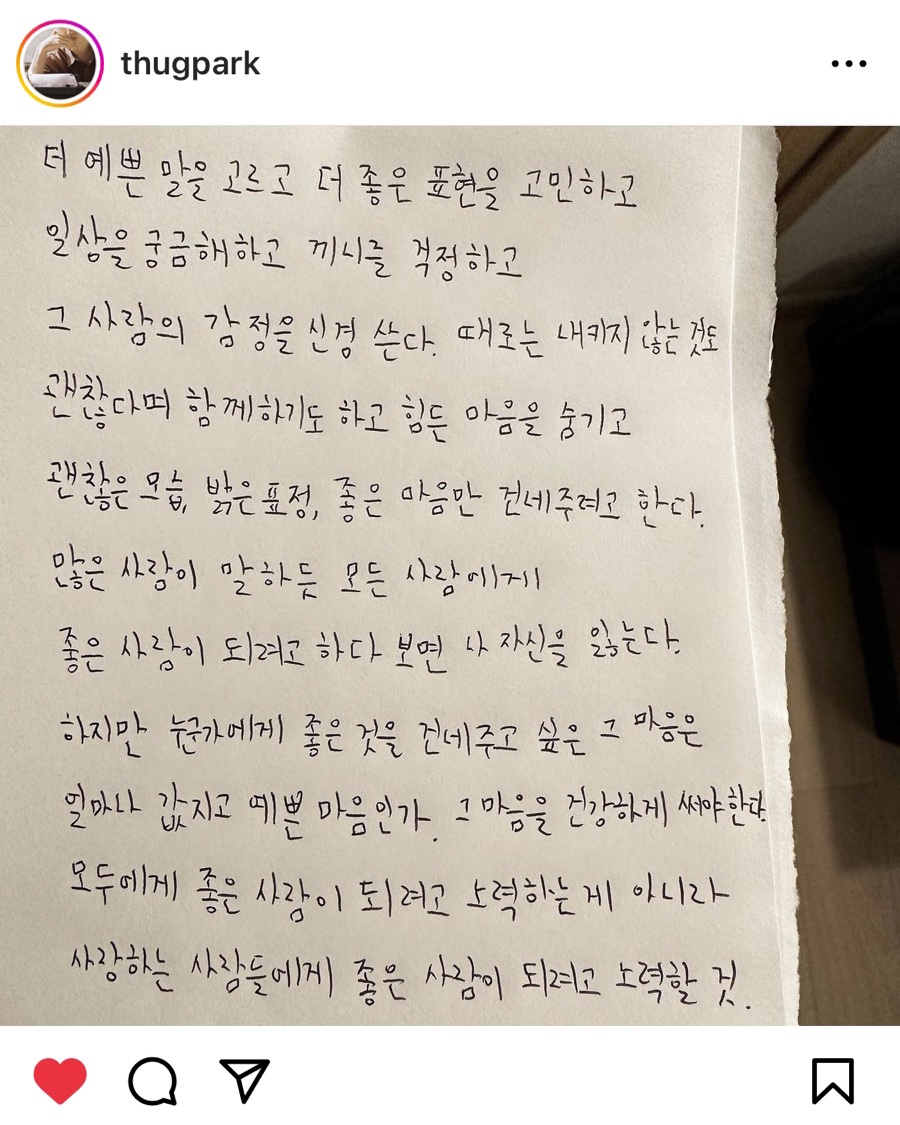 thugpark
더 예쁜 말을 고르고 더 좋은 표현을 고민하고
일상을 궁금해하고 끼니를 걱정하고
그 사람의 감정을 신경 쓴다. 때로는 내키지 않는 것도
괜찮다며 함께하기도 하고 힘든 마음을 숨기고
괜찮은 모습, 밝은 표정, 좋은 마음만 건네주려고 한다.
많은 사람이 말하듯 모든 사람에게
좋은 사람이 되려고 하다 보면 나 자신을 잃는다.
하지만 누군가에게 좋은 것을 건네주고 싶은 그 마음은
얼마나 값지고 예쁜 마음인가. 그 마음을 건강하게 써야 한다.
모두에게 좋은 사람이 되려고 노력하는 게 아니라
사랑하는 사람들에게 좋은 사람이 되려고 노력할 것.